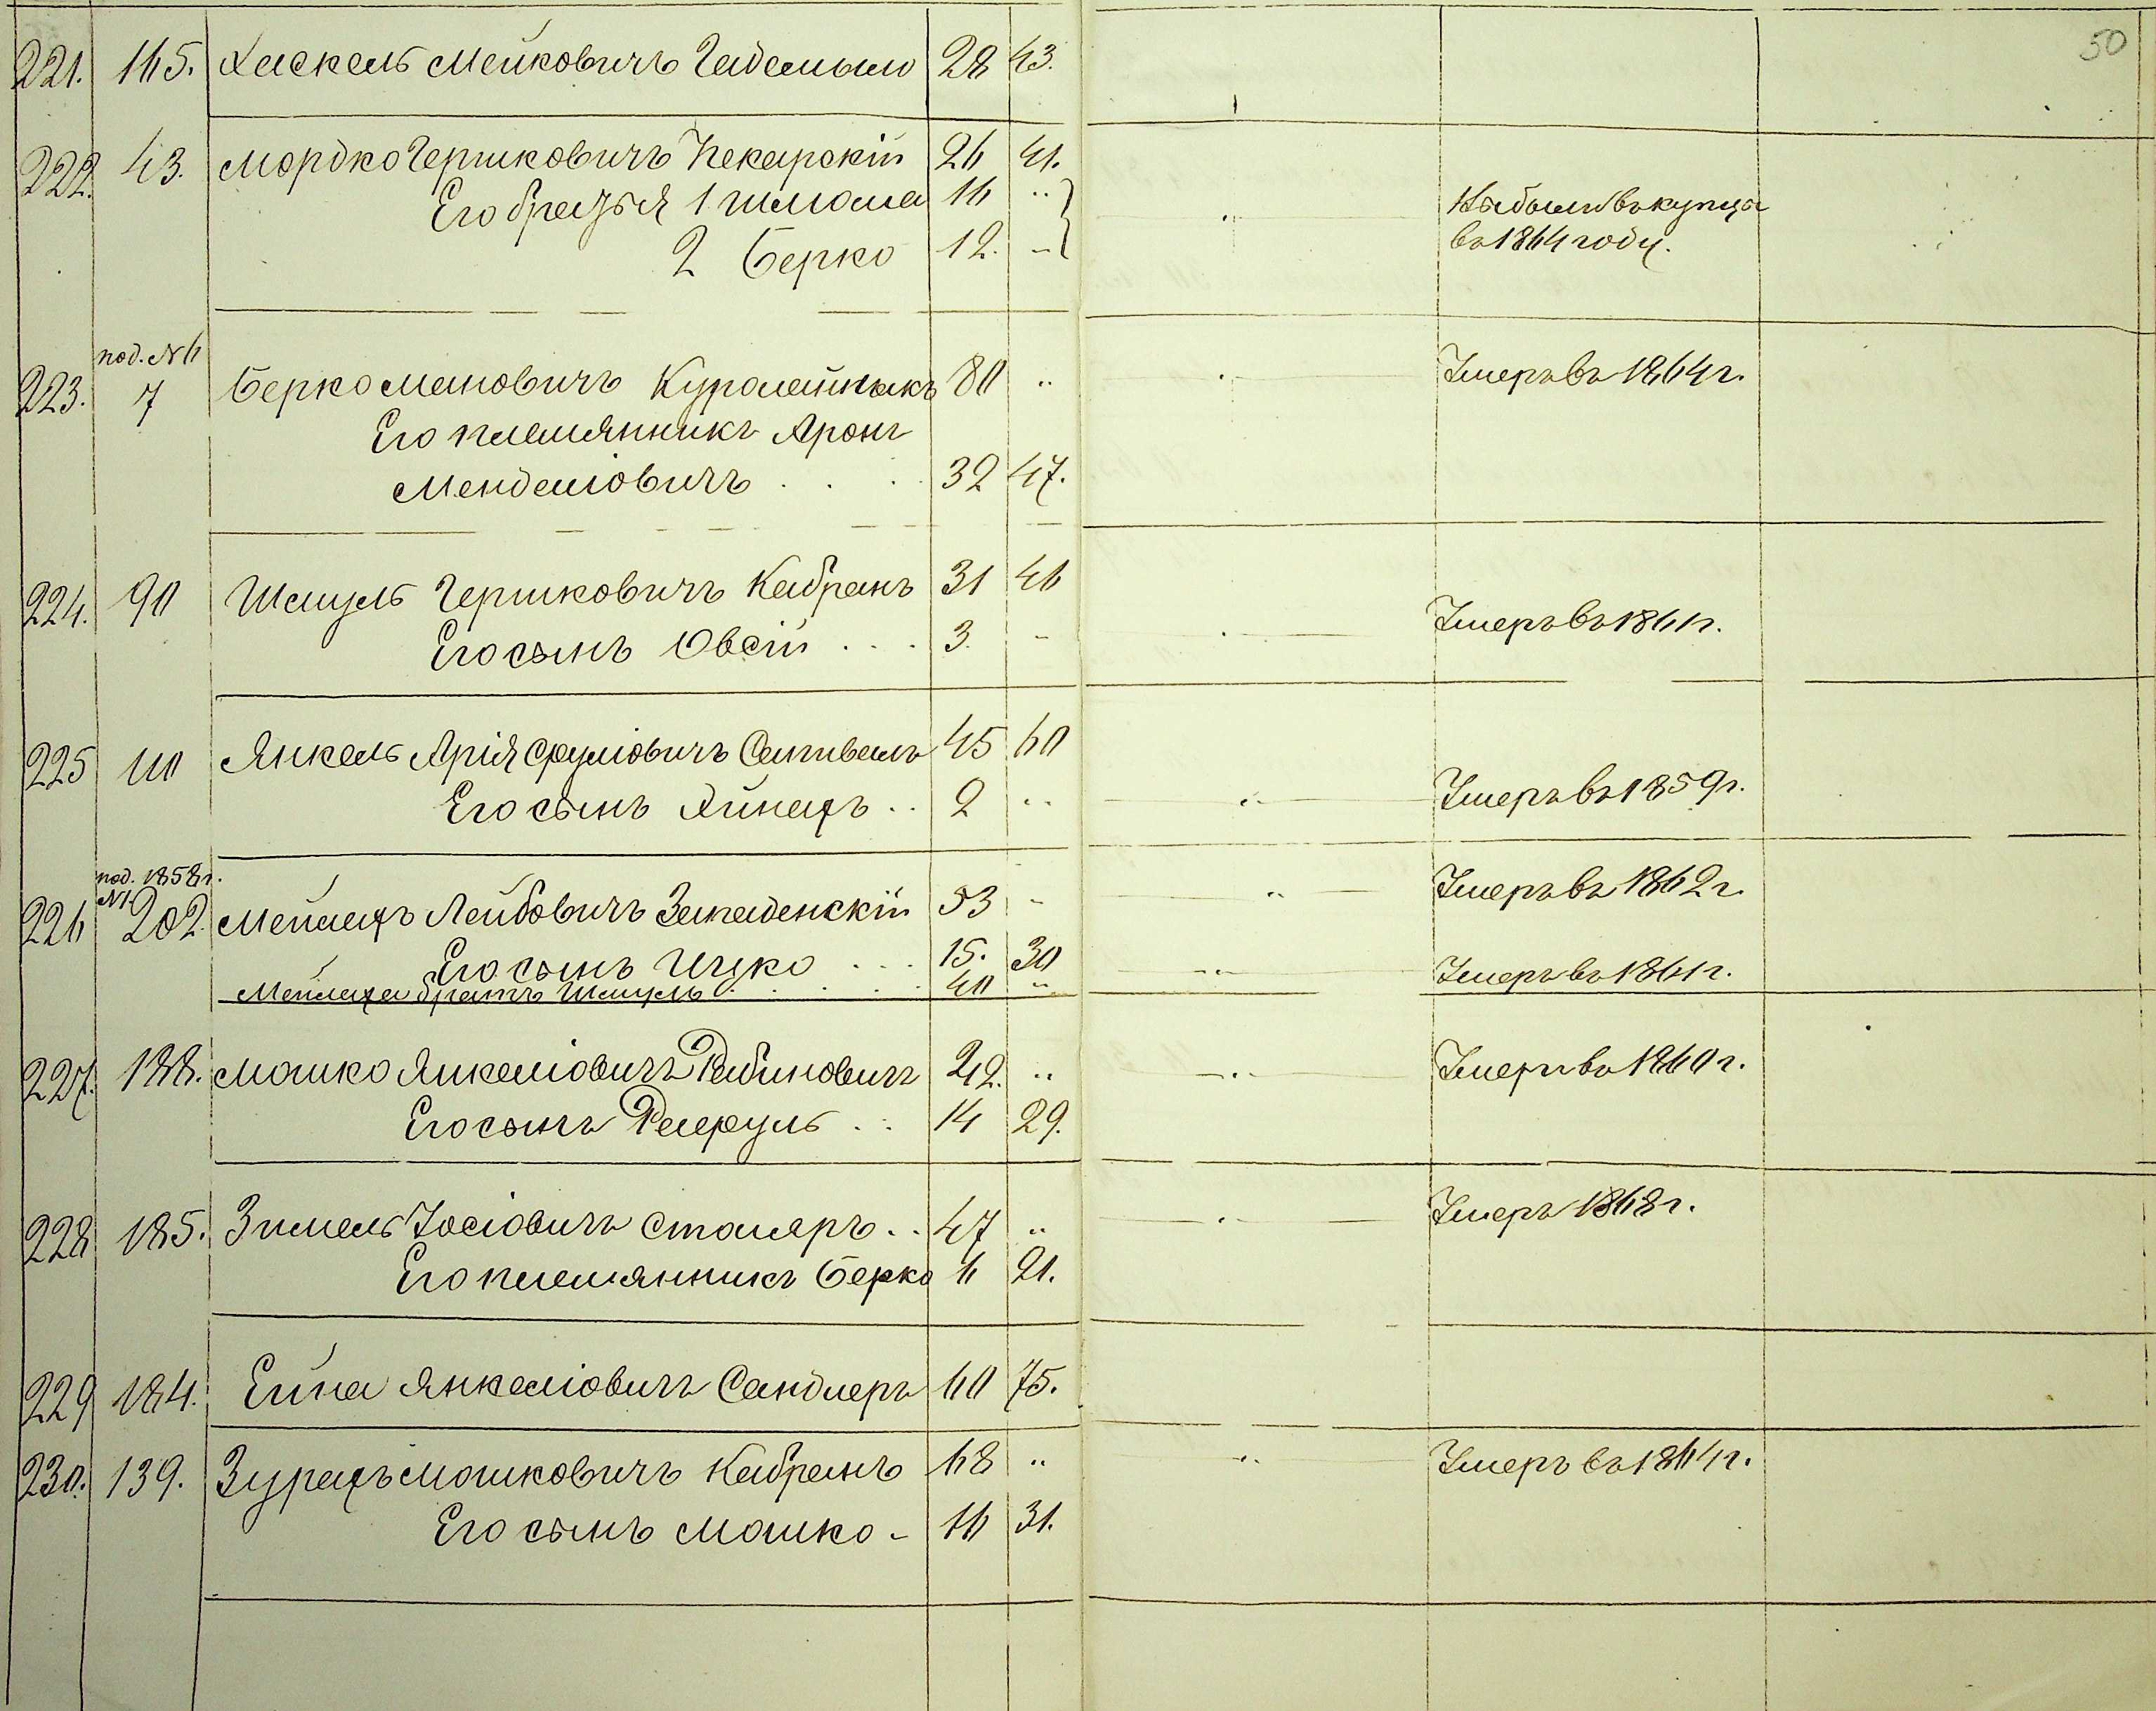 50
221. 165. Хаскель Мейковичъ 28 43.
222. 43. Мордко Гершковичъ Пекарскій 26 41.
Его братья 1 Шлома 16 „
2 Берко 12. „
Выбыли въ купцы
въ 1864 году.
под. № 6
223. 7 Берко Мановичъ 80 „ Умеръ въ 1864 г.
Его племянникъ Аронъ
Менделіовичъ . . . . 32 47.
224. 90 Шмуль Гершковичъ Кабранъ 31 46
Его сынъ Овсій . . . 3. „ Умеръ въ 1861 г.
225 110 Янкель Арія Сруліовичъ 45 60
Его сынъ Айнехъ . . 2 „ Умеръ въ 1859 г.
под. 1858 г.
№ 1
226 202. Мейлехъ Лейбовичъ Западенскій 53 „ Умеръ въ 1862 г.
Его сынъ Ицко . . . 15. 30
Мейлеха братъ Шмуль . . . . . 40 „ Умеръ въ 1861 г.
227. 188. Мошко Янкеліовичъ Рабиновичъ 42. „ Умеръ въ 1860 г.
Его сынъ Рафуль . . 14 29.
228 185. Зимель Іосіовичъ Столяръ . . 47 „ Умеръ 1868 г.
Его племянникъ Берко 6 21.
229 184. Ейна Янкеліовичъ Сандлеръ 60 75.
230. 139. Зурахъ Мошковичъ Кабранъ 68 „ Умеръ въ 1864 г.
Его сынъ Мошко - 16 31.